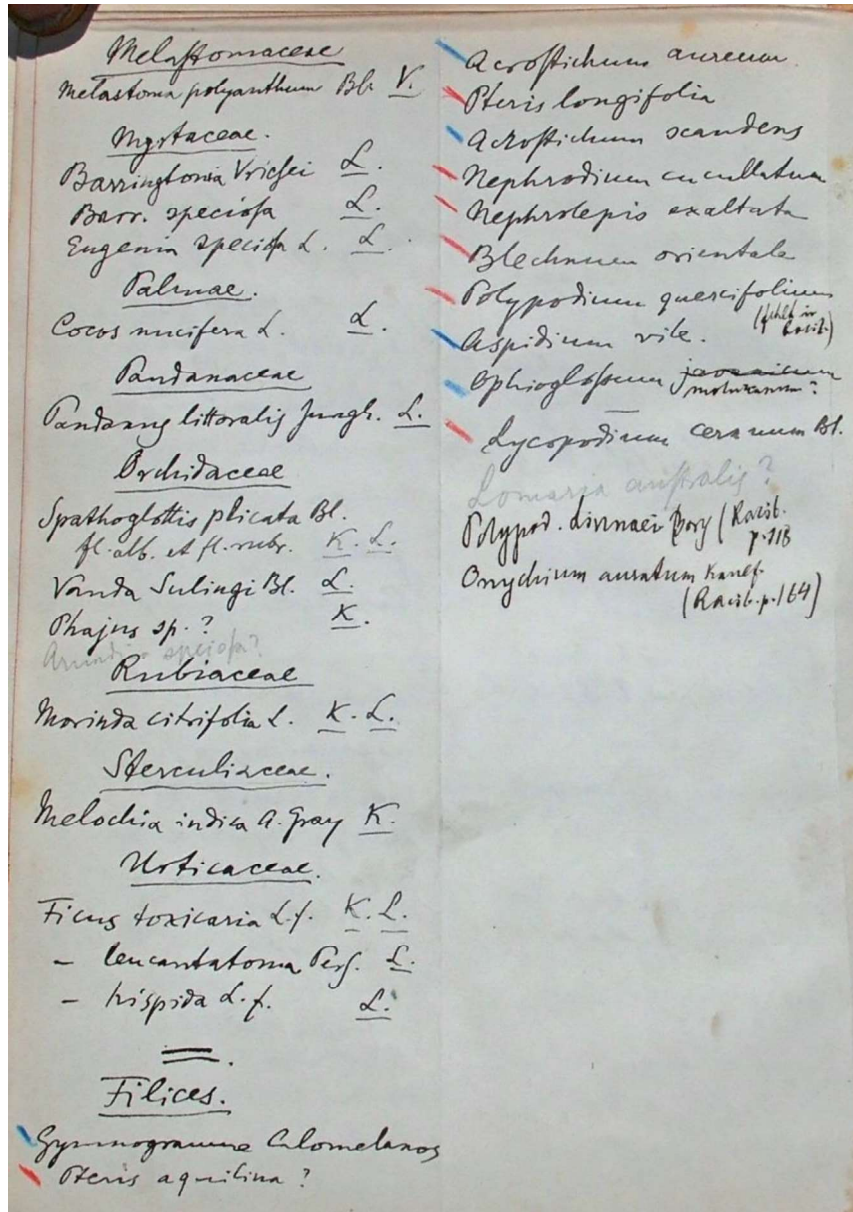 Melastomaceae
Melastoma polyanthum Bl. V.
Myrtaceae.
Barringtonia Vriesei L.
Barr. speciosa L.
Eugenia speciosa L. L.
Palmae.
Cocos nucifera L. L.
Pandanaceae
Pandanus littoralis Jungh. L.
Orchidaceae
Spathoglottis plicata Bl.
fl. alb. et fl. rubr. K. L.
Vanda Sulingi Bl. L.
Phajus sp. ? K.
Arundina speciosa?
Rubiaceae
Morinda citrifolia L. K. L.
Sterculiaceae.
Melochia indica A. Gray K.
Urticaceae.
Ficus toxicaria L.f. K. L.
– leucantatoma Pers. L.
– hispida L.f. L.
Filices.
Gymnogramme Calomelanos
Pteris aquilina ?
Acrostichum aureum
Pteris longifolia
Acrostichum scandens
Nephrodium cucullatum
Nephrolepis exaltata
Blechnum orientale
Polypodium quercifolium
(fehlt in
Racib.)
Aspidium vile.
Ophioglossum javanicum
moluccanum ?
Lycopodium cernuum Bl.
Lomaria australis ?
Polypod. Linnaei Bory (Racib.
p. 118
Onychium auratum Kaulf.
(Racib. p. 164)